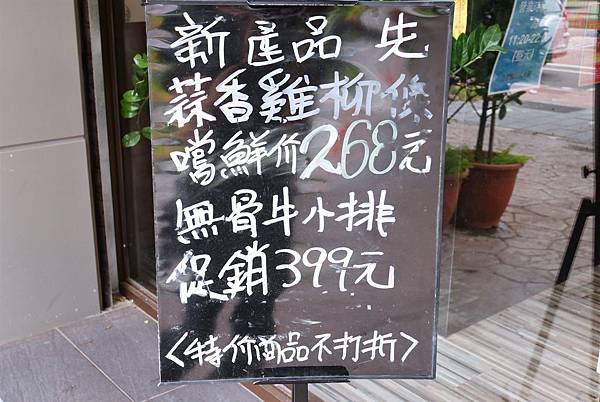 新產品 先
蒜香雞柳條
嚐鮮价268元
無骨牛小排
促銷399元
<特价商品不打折>
11:20~22: